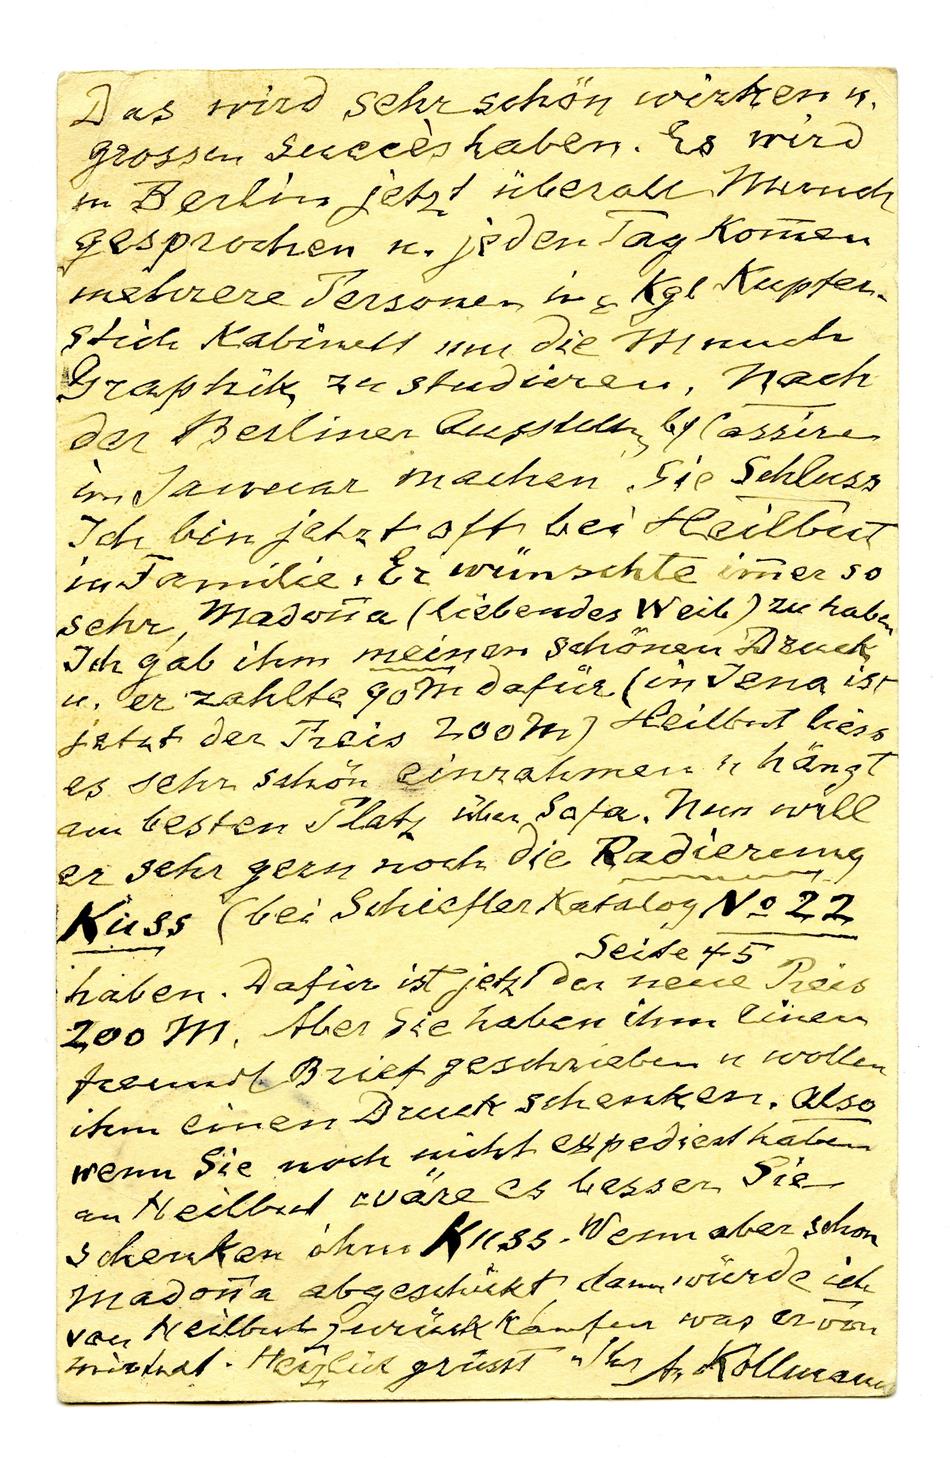 Das wird sehr schön wirken u.
grossen Succès haben. Es wird
in Berlin jetzt überall Munch
gesprochen u. jeden Tag kom̅en
mehrere Personen in Kgl Kupfer-
stich Kabinett um die Munch
Graphik zu studieren. Nach
der Berliner Ausstellung bei Cassirer
im Januar machen Sie Schluss
Ich bin jetzt oft bei Heilbut
in Familie. Er wünschte im̅er so
sehr, Madon̅a (liebendes Weib) zu haben
Ich gab ihm meinen schönen Druck
u. er zahlte 90 M dafür (in Jena ist
jetzt der Preis 200 M) Heilbut liess
es sehr schön einrahmen u hängt
am besten Platz über Sofa. Nun will
er sehr gern noch die Radierung
Kuss (bei Schiefler Katalog No 22
Seite 45
haben. Dafür ist jetzt der neue Preis
200 M. Aber Sie haben ihm einen
freundl Brief geschrieben u wollen
ihm einen Druck schenken. Also
wenn Sie noch nicht expediert haben
an Heilbut wäre es besser Sie
schenken ihm Kuss. Wenn aber schon
Madon̅a abgeschickt, dann würde ich
von Heilbut zurückkaufen was er von
mir hat. Herzlich grüsst Ihr A. Kollmann